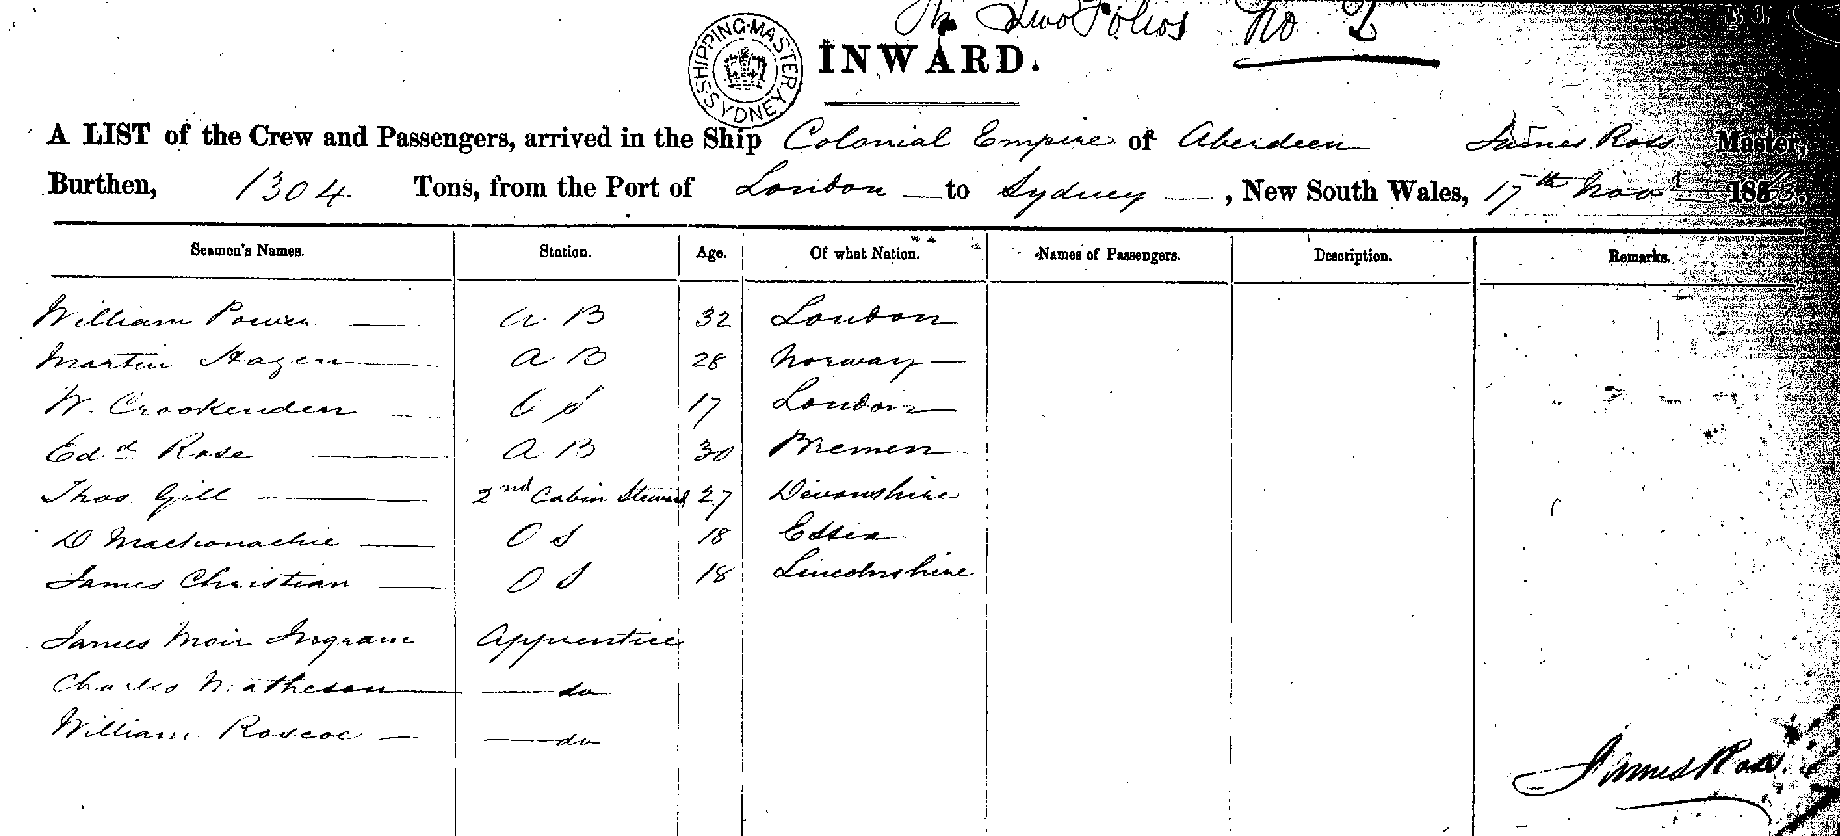 In Two Folios No 2
SHIPPING MASTER SYDNEY
INWARD.
A LIST of the Crew and Passengers, arrived in the Ship Colonial Empire of Aberdeen James Ross Master,
Burthen, 1304 Tons, from the Port of London to Sydney, New South Wales, 17th Nov
Seamen's Names. Station. Age. Of what Nation. Names of Passengers. Description. Remarks.
William Power A B 32 London
Martin Hagen A B 28 Norway
W. Crookenden O S 17 London
Edd Rose A B 30 Bremen
Thos Gill 2nd Cabin Steward 27 Devonshire
D Machonachie O S 18 Essex
James Christian O S 18 Lincolnshire
James Moir Ingram Apprentice
Charles Matheson do
William Roscoe do
James Ross